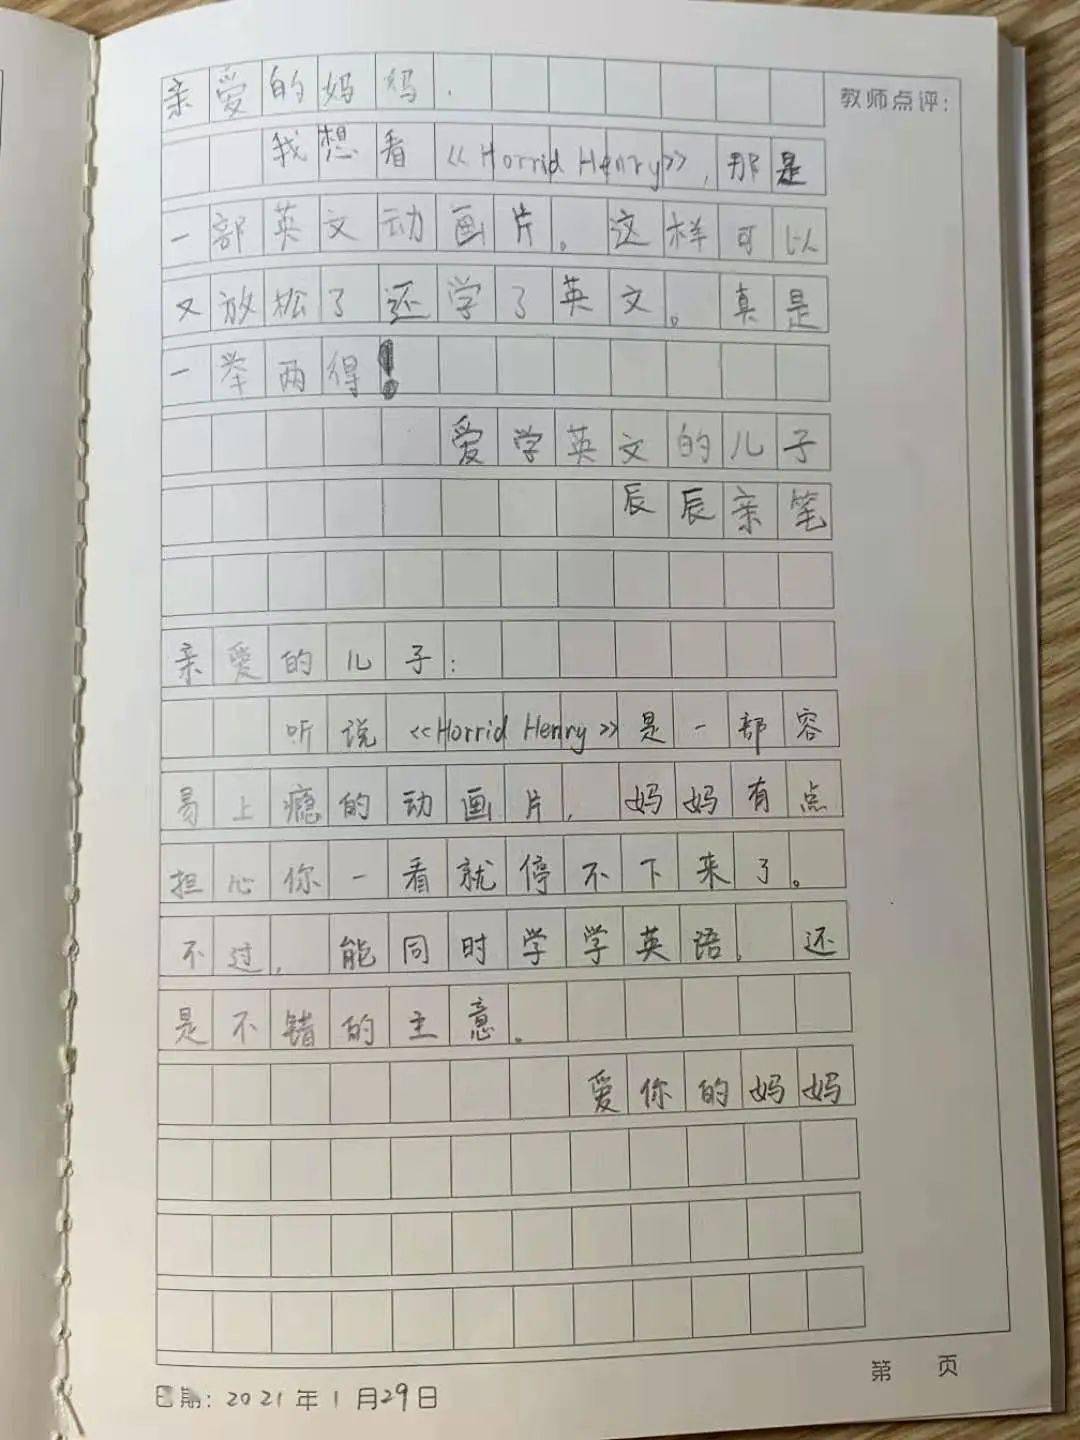 教师点评:
亲爱的妈妈.
我想看《Horrid Henry》,那是
一部英文动画片。这样可以
又放松了还学了英文。真是
一举两得!
爱学英文的儿子
辰辰亲笔
亲爱的儿子:
听说《Horrid Henry》是一部容
易上瘾的动画片,妈妈有点
担心你一看就停不下来了。
不过,能同时学学英语,还
是不错的主意。
爱你的妈妈
第 页
日期:2021年1月29日